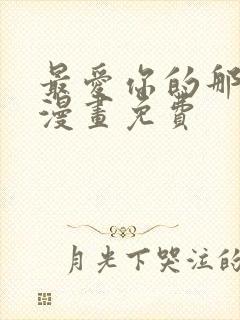 最愛你的那
漫畫免費
月光下哭泣的